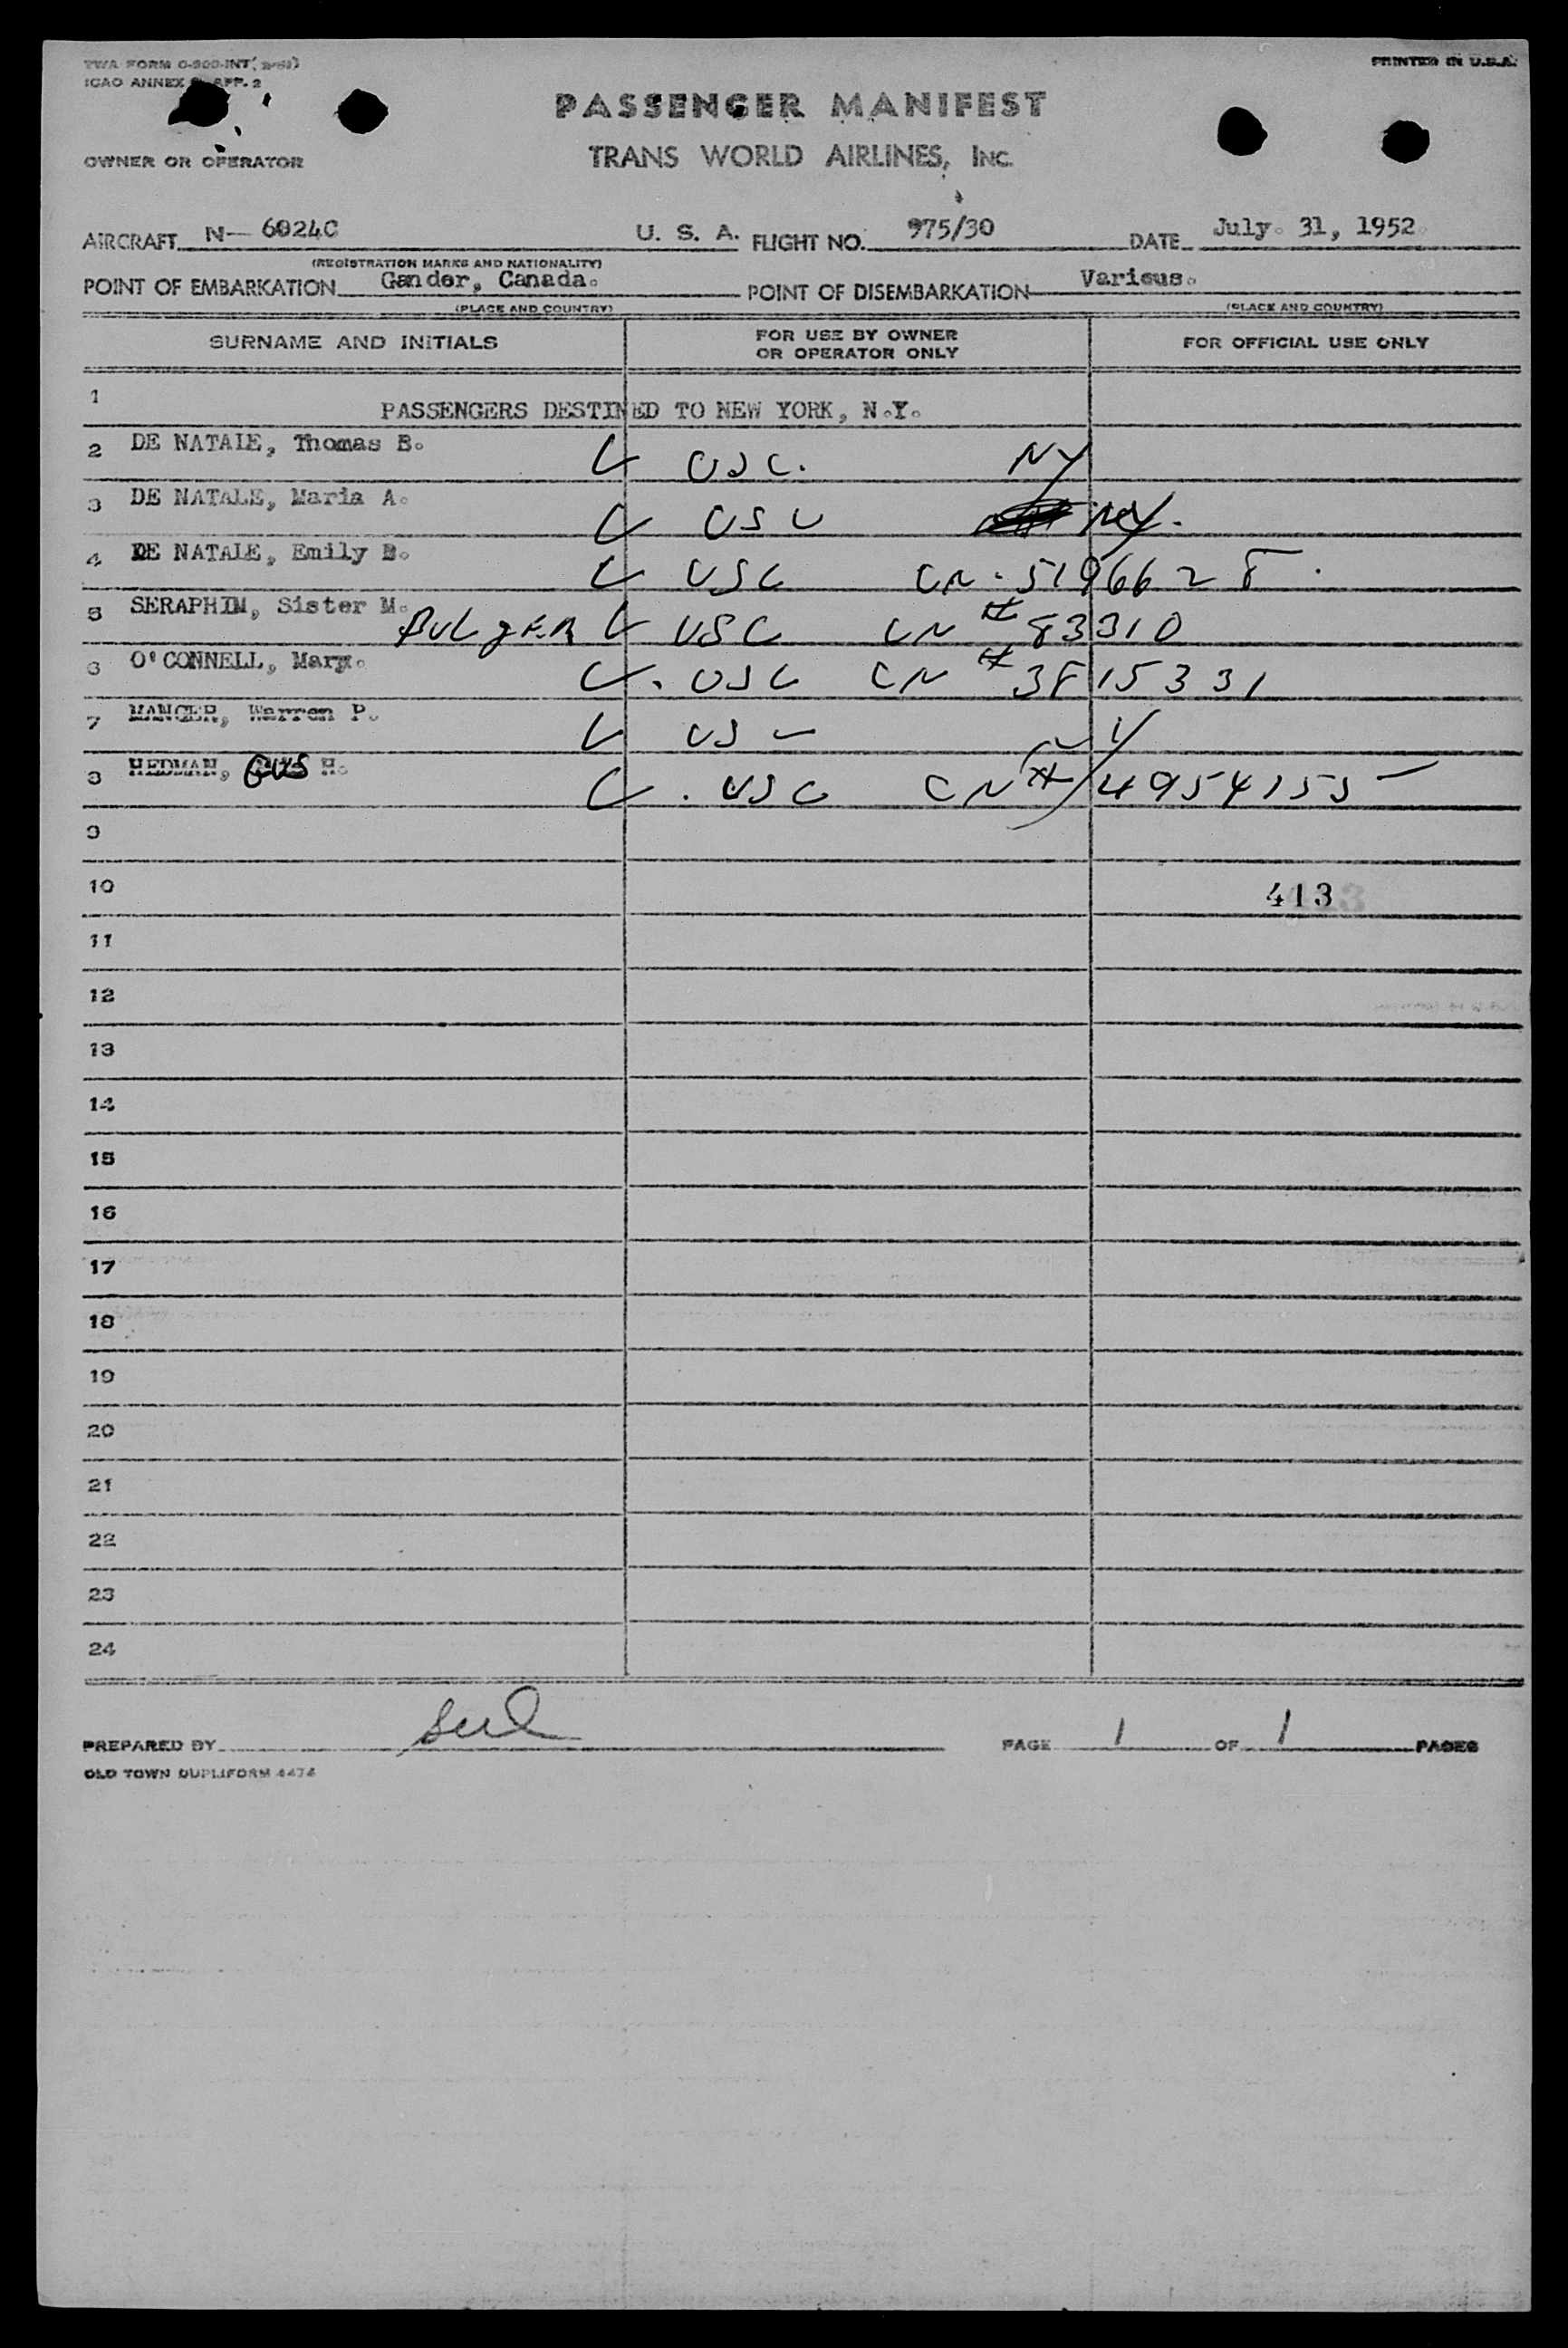 TWA FORM 0-900-INT
ICAO ANNEX APP. 2
PRINTED IN U.S.A.
PASSENGER MANIFEST
OWNER OR OPERATOR
TRANS WORLD AIRLINES, INC.
AIRCRAFT N- 6024C U. S. A. FLIGHT NO. 975/30 DATE July. 31, 1952.
(REGISTRATION MARKS AND NATIONALITY)
POINT OF EMBARKATION Gander, Canada. POINT OF DISEMBARKATION Various.
(PLACE AND COUNTRY) (PLACE AND COUNTRY)
SURNAME AND INITIALS FOR USE BY OWNER OR OPERATOR ONLY FOR OFFICIAL USE ONLY
1 PASSENGERS DESTINED TO NEW YORK, N.Y.
2 DE NATALE, Thomas B. USC. NY
3 DE NATALE, Maria A. USC NY.
4 DE NATALE, Emily B. USC CN. 5196628.
5 SERAPHIM, Sister M. BULGER USC CN # 83310
6 O'CONNELL, Mary. USC CN # 3815331
7 MANGER, Warren P. USC NY
8 HEDMAN, GUS H. USC CN # 4954155
9
10 413
11
12
13
14
15
16
17
18
19
20
21
22
23
24
PREPARED BY PAGE 1 OF 1 PAGES
OLD TOWN DUPLIFORM 4474